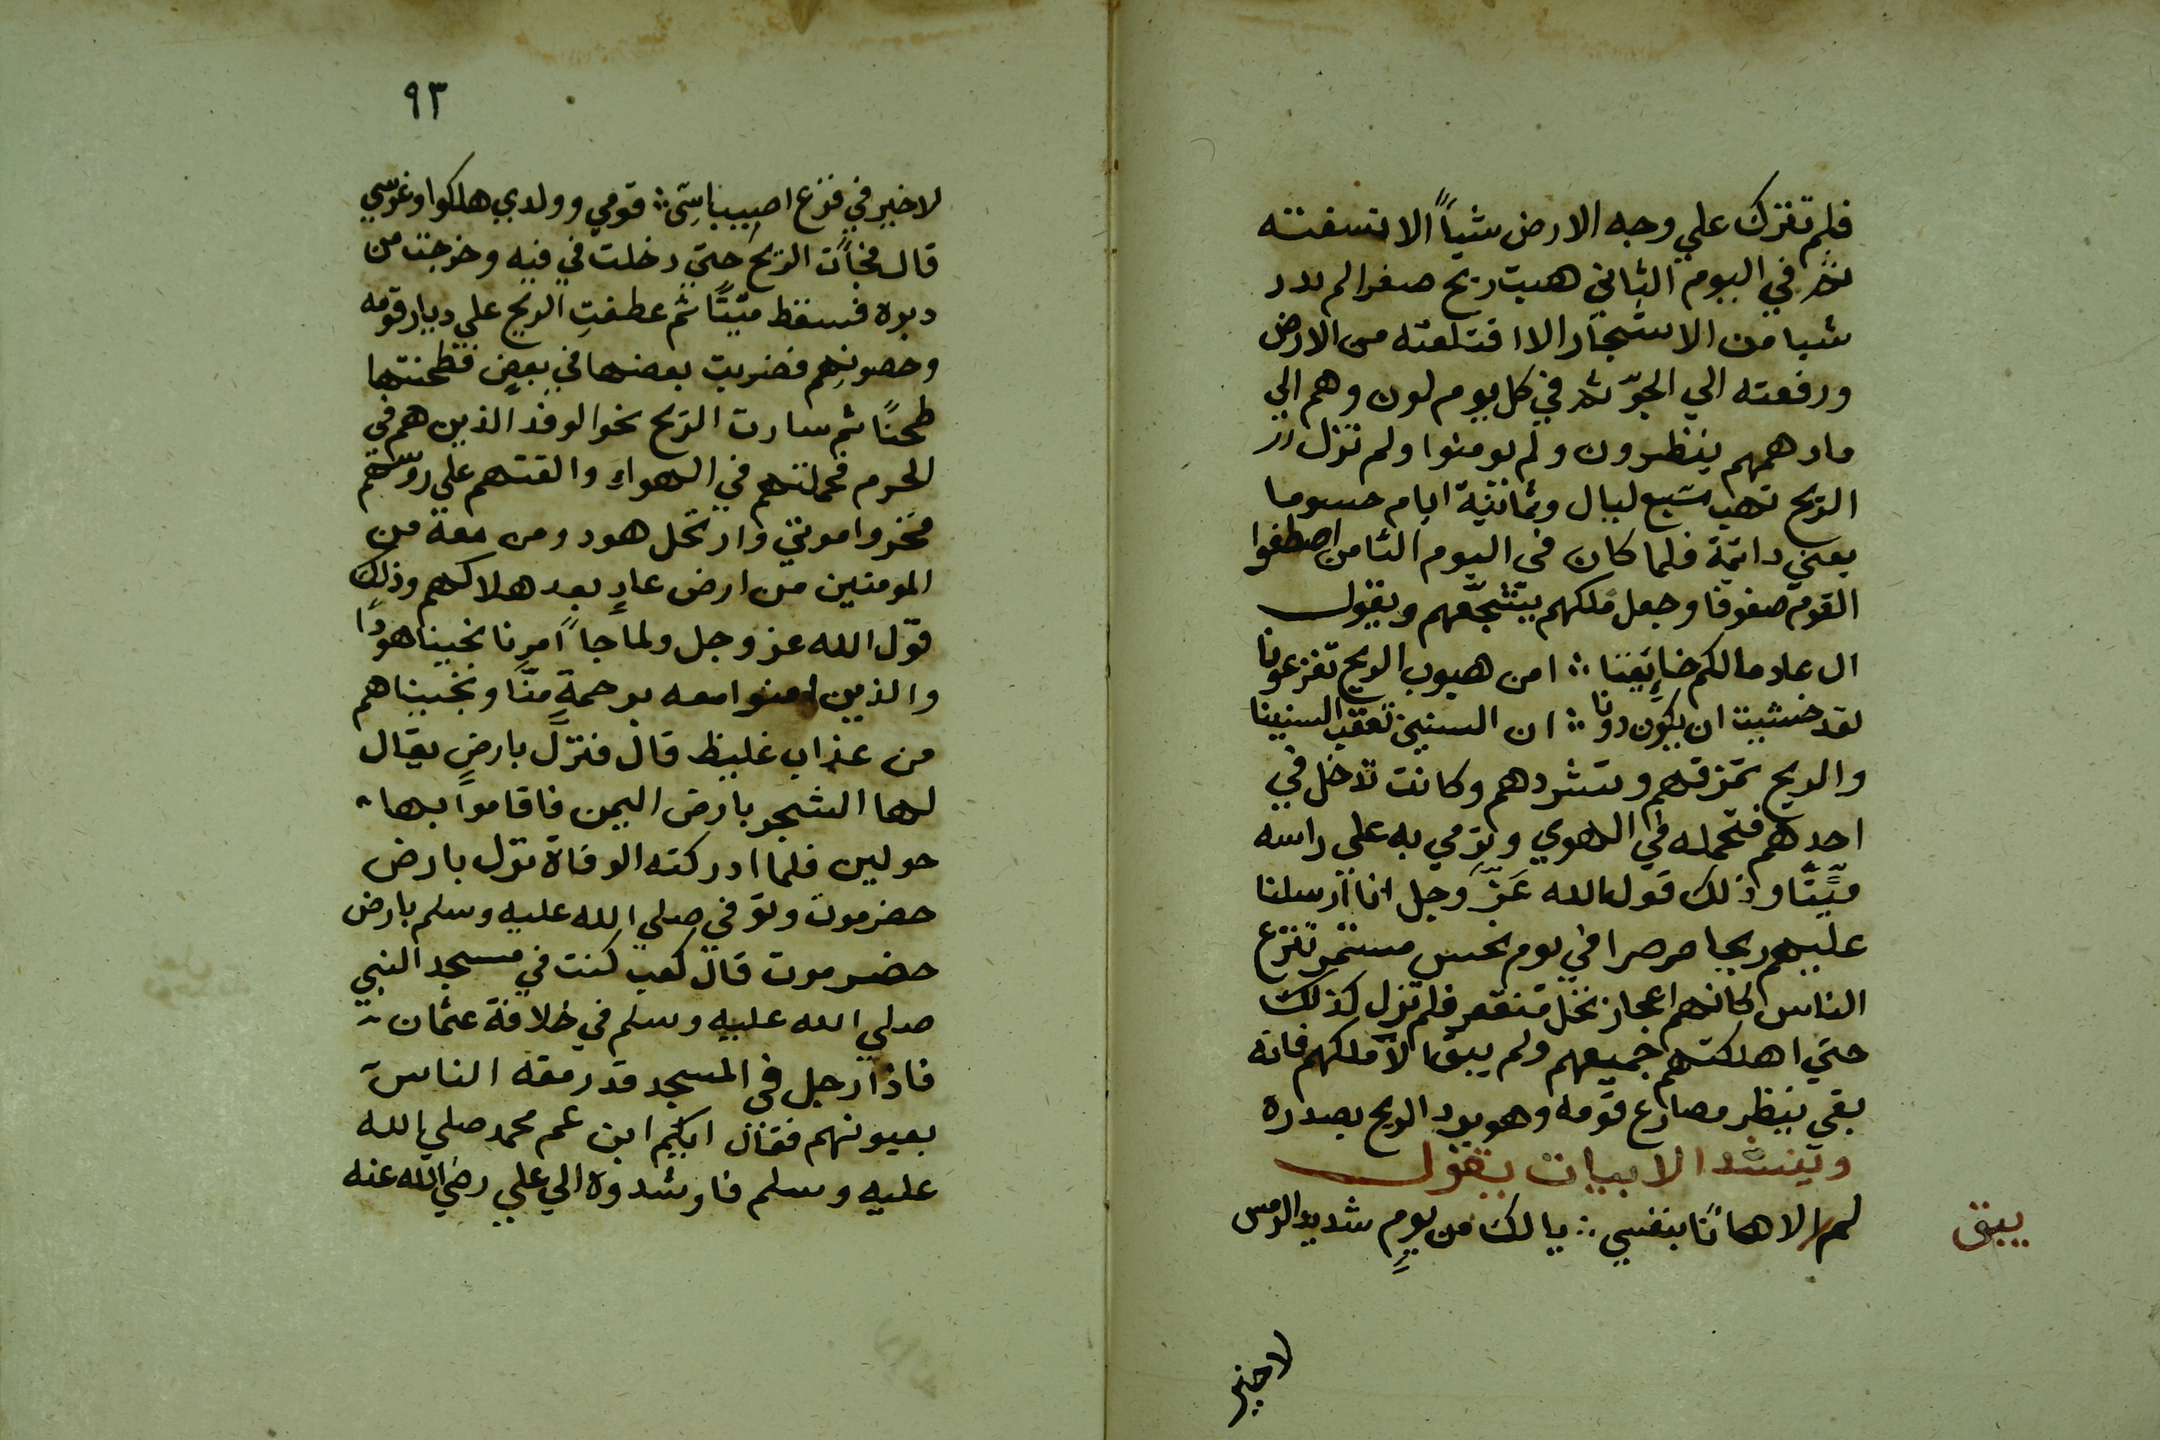 فلم تترك علي وجه الارض شياً الا نسفته
ثم في اليوم الثاني هبت ريح صفرا لم تدر
شيا من الاشجار الا اقتلعته من الارض
ورفعته الي الجوّ ثم في كل يوم لون وهم الي
مادهمهم ينظرون ولم يومنوا ولم تزل
الريح تهب سبع ليال وثمانية ايام حسوما
يعني دائمة فلما كان في اليوم الثامن اصطفوا
القوم صفوفا وجعل ملكهم يشجعهم ويقول
ال عاد مالكم ضايقينا ؞ امن هبوب الريح تفزعونا
لقد خشيت ان يكون دونا ؞ ان السنين تعقب السنينا
والريح تمزقهم وتشردهم وكانت تدخل في
احدهم فتحمله في الهوي وترمي به علي راسه
ميّتًا وذلك قول الله عَزّ وجل انا ارسلنا
عليهم ريحا صرصرا في يوم نحس مستمر تنزع
الناس كانهم اعجاز نخل منقعر فلم تزل كذلك
حتي اهلكتهم جميعهم ولم يبق الا ملكهم فانه
بقي ينظر مصارع قومه وهو يرد الريح بصدره
وينشد الابيات يقول
لم الا همانًا بنفسي ؞ يا لك من يومٍ شديد الومس
يبق
لاخير
٩٣
لاخير في فزع اصيب باسي ؞ قومي وولدي هلكوا وغرسي
قال فجأت الريح حتي دخلت في فيه وخرجت من
دبره فسقط ميّتًا ثم عطفت الريح علي ديار قومه
وحصونهم فضربت بعضها في بعض فطحنتها
طحنًا ثم سارت الريح نحو الوفد الذين هم في
الحرم فحملتهم في الهواء والقتهم علي روسهم
فخروا موتي وارتحل هود ومن معه من
المومنين من ارض عادٍ بعد هلاكهم وذلك
قول الله عز وجل ولما جاً امرنا نجينا هودًا
والذين امنوا معه برحمةٍ منّا ونجيناهم
من عذاب غليظ قال فنزل بارضٍ يقال
لها الشجر بارض اليمن فاقاموا بها
حولين فلما ادركته الوفاة نزل بارض
حضرموت وتوفي صلي الله عليه وسلم بارض
حضرموت قال كعب كنت في مسجد النبي
صلي الله عليه وسلم في خلافة عثمان
فاذا رجل في المسجد قد رمقه الناس
بعيونهم فقال ايكم ابن عم محمد صلي الله
عليه وسلم فارشدوه الي علي رضي الله عنه